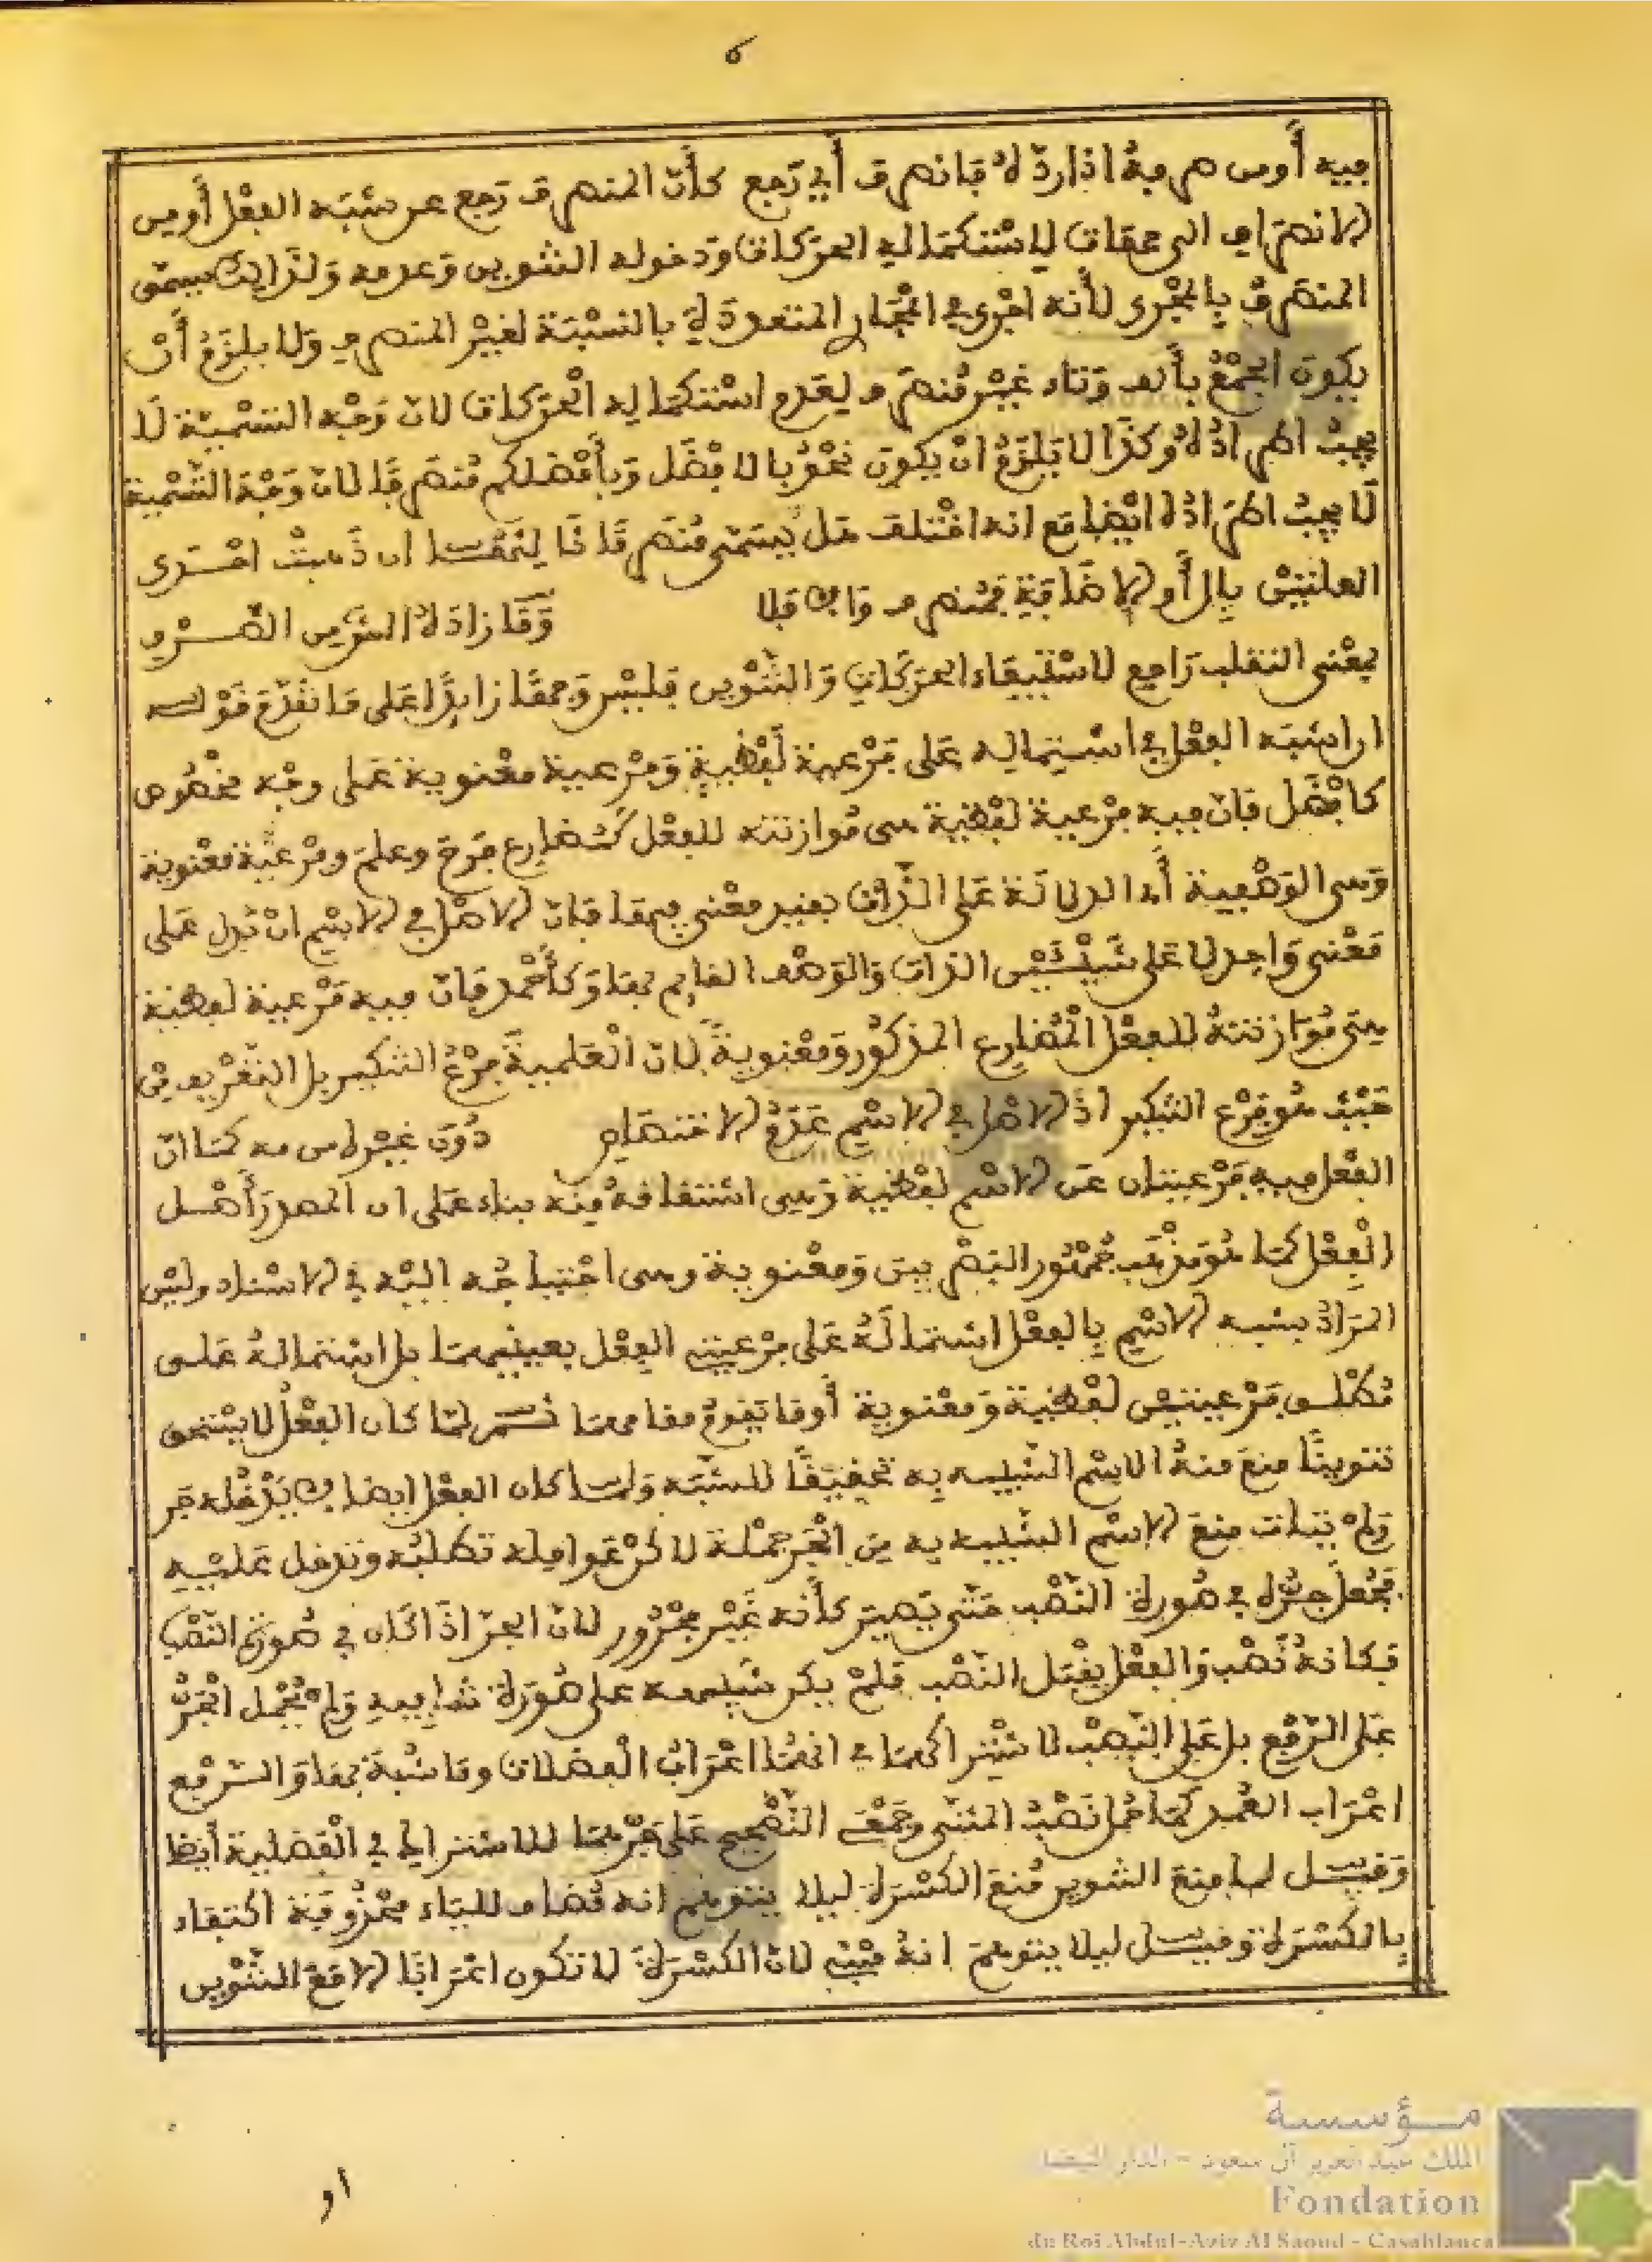 ٥
فيه أو من صرفه اذا رده فانصرف أي رجع كأن المنصرف رجع عن شبه الفعل أو من
الانصراف الى جهات لاستكماله الحركات ودخوله التنوين وعدمه ولذالك يسمى
المنصرف بالمجرى لأنه اجرى في المجاري المتعددة بالنسبة لغير المنصرف ولا يلزم أن
يكون الجمع بألف وتاء غير منصرف لعدم استكماله الحركات لان وجه التسمية لا
يجب اطراده وكذا لا يلزم ان يكون نحو بالافضل وبأفضلكم منصرفا لان وجه التسمية
لا يجب اطراده ايضا مع انه اختلف هل يسمى منصرفا ثالثها ان ذهبت احدى
العلتين بال أو الاضافة فمنصرف والا فلا وما زاده التنوين الصرف
بمعنى التقلب راجع لاستيفاء الحركات والتنوين فليس وجها زايدا على ما تقدم قوله
ان اشبه الفعل في اشتماله على فرعية لفظية وفرعية معنوية على وجه مخصوص
كافضل فان فيه فرعية لفظية هى موازنته للفعل كمضارع فرح وعلم وفرعية معنوية
وهى الوصفية أى الدلالة على الذات بقيد معنى فيها فان الاصل في الاسم ان تدل على
معنى واحد لا على شيئين الذات والوصف القايم بها وكأحمد فان فيه فرعية لفظية
هى موازنته للفعل المضارع المذكور ومعنوية لان العلمية فرع التنكير بل التعريف من
حيث هو فرع التنكير اذ الاصل في الاسم عدم الاختصاص دون غيره من مه كما ان
الفعل فيه فرعيتان عن الاسم لفظية وهى اشتقاقه منه بناء على ان المصدر أصل
الفعل كما هو مذهب جمهور البصريين ومعنوية وهى احتياجه اليه في الاسناد وليس
المراد بشبه الاسم بالفعل اشتماله على فرعيتى الفعل بعينيهما بل اشتماله على
مطلق فرعيتين لفظية ومعنوية أو ما يقوم مقامهما ثم لما كان الفعل لا يستحق
تنوينا منع منه الاسم الشبيه به تخفيفا للشبه ولما كان الفعل ايضا لا يدخله جر
ولم يتات منع الاسم الشبيه به من الجر جملة لان عوامله تطلبه وتدخل عليه
فجعل جره في صورة النصب حتى يصير كأنه غير مجرور لان الجر اذا كان في صورة النصب
فكانه نصب والفعل يقبل النصب فلم يكن شبيهه على صورة تنافيه ولم يحمل الجر
على الرفع بل على النصب لاشتراكهما في انهما اعراب الفضلات وما شبه بها والرفع
اعراب العمد كما حمل نصب المثنى وجمعى التصحيح على جرهما للاشتراك في الفضلية أيضا
وقيل لما منع التنوين منع الكسرة ليلا يتوهم انه مضاف للياء محذوفة اكتفاء
بالكسرة وقيل ليلا يتوهم انه مبنى لان الكسرة لا تكون اعرابا الا مع التنوين
او
مؤسسة
الملك عبد العزيز آل سعود - الدار البيضاء
Fondation
du Roi Abdul-Aziz Al Saoud - Casablanca